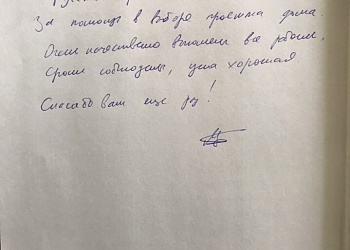 За помощь в выборе проекта дома.
Очень качественно выполнены все работы,
Сроки соблюдены, цена хорошая
Спасибо вам еще раз!